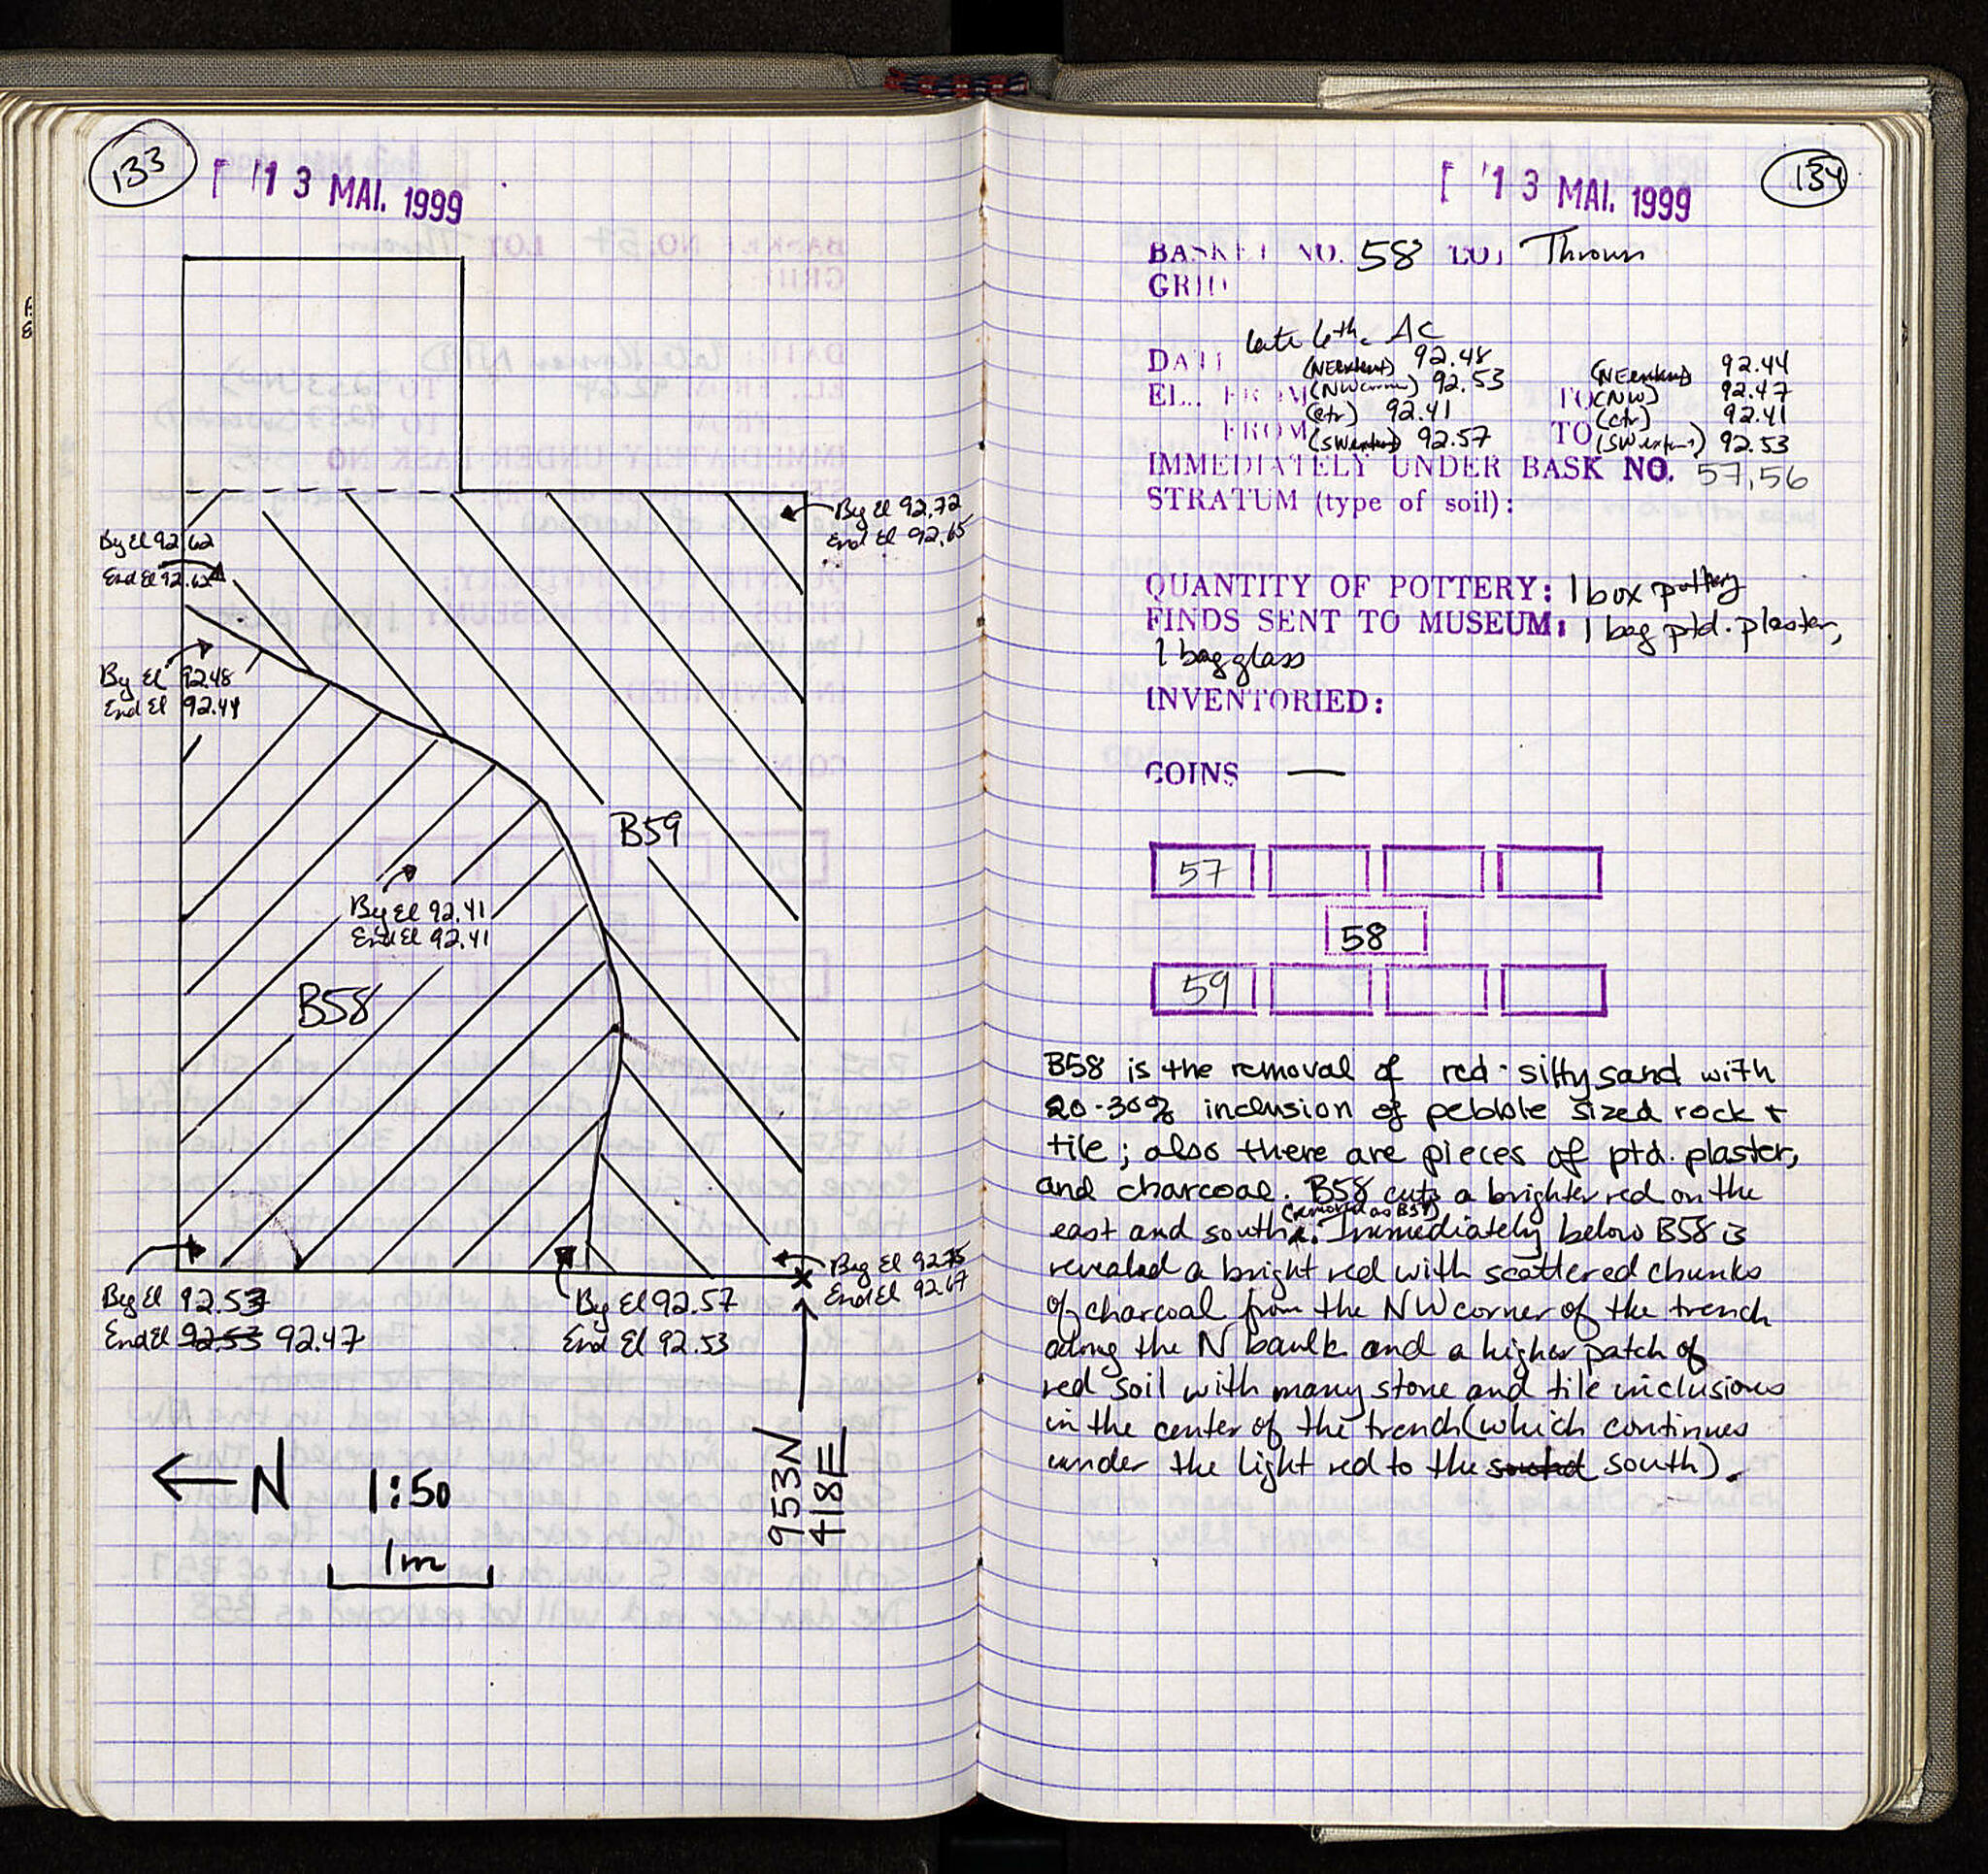 133
13 MAI. 1999
Beg El 92.72
End El 92.65
Beg El 92.62
End El 92.62
Beg El 92.48
End El 92.44
B59
Beg El 92.41
End El 92.41
B58
Beg El 92.75
End El 92.67
Beg El 92.53
End El 92.53 92.47
Beg El 92.57
End El 92.53
← N 1:50
953N
418E
1m
134
13 MAI. 1999
BASKET NO. 58 LOT Thrown
GRID
late 6th c. AC
DATE (NE extent) 92.48 (NE extent) 92.44
EL. FROM (NW corner) 92.53 TO (NW) 92.47
(ctr) 92.41 (ctr) 92.41
FROM (SW extent) 92.57 TO (SW extent) 92.53
IMMEDIATELY UNDER BASK NO. 57, 56
STRATUM (type of soil):
QUANTITY OF POTTERY: 1 box pottery
FINDS SENT TO MUSEUM: 1 bag ptd. plaster,
1 bag glass
INVENTORIED:
COINS —
57
58
59
B58 is the removal of red silty sand with
20-30% inclusion of pebble sized rock +
tile; also there are pieces of ptd. plaster,
and charcoal. B58 cuts a brighter red on the
(removed as B59)
east and south. Immediately below B58 is
revealed a bright red with scattered chunks
of charcoal from the NW corner of the trench
along the N baulk and a higher patch of
red soil with many stone and tile inclusions
in the center of the trench (which continues
under the light red to the south).